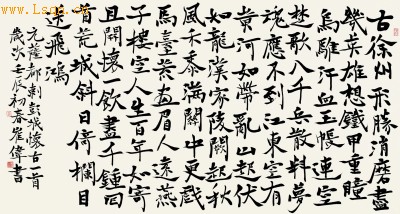 古徐州形勝消磨盡
幾英雄想鐵甲重瞳
烏騅汗血玉帳連空
楚歌八千兵散料夢
魂應不到江東空有
黃河如帶亂山起伏
如龍漢家陵闕起秋
風禾黍滿關中更戲
馬臺荒畫眉人遠燕
子樓空人生百年如寄
且開懷一飲盡千鍾回
首荒城斜日倚欄目
送飛鴻
元薩都剌彭城懷古一首
歲次壬辰初春崔偉書